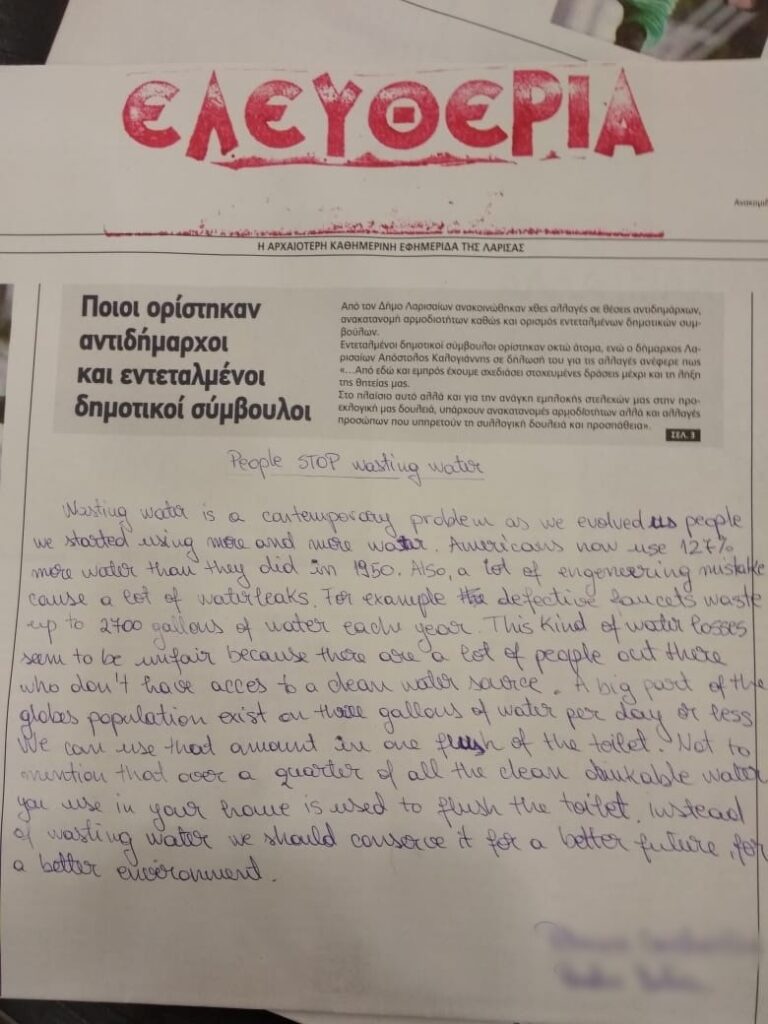 ΕΛΕΥΘΕΡΙΑ
Ανακομιδ
Η ΑΡΧΑΙΟΤΕΡΗ ΚΑΘΗΜΕΡΙΝΗ ΕΦΗΜΕΡΙΔΑ ΤΗΣ ΛΑΡΙΣΑΣ
Ποιοι ορίστηκαν
αντιδήμαρχοι
και εντεταλμένοι
δημοτικοί σύμβουλοι
Από τον Δήμο Λαρισαίων ανακοινώθηκαν χθες αλλαγές σε θέσεις αντιδημάρχων,
ανακατανομή αρμοδιοτήτων καθώς και ορισμός εντεταλμένων δημοτικών συμ-
βούλων.
Εντεταλμένοι δημοτικοί σύμβουλοι ορίστηκαν οκτώ άτομα, ενώ ο δήμαρχος Λα-
ρισαίων Απόστολος Καλογιάννης σε δήλωσή του για τις αλλαγές ανέφερε πως
«...Από εδώ και εμπρός έχουμε σχεδιάσει στοχευμένες δράσεις μέχρι και τη λήξη
της θητείας μας.
Στο πλαίσιο αυτό αλλά και για την ανάγκη εμπλοκής στελεχών μας στην προ-
εκλογική μας δουλειά, υπάρχουν ανακατανομές αρμοδιοτήτων αλλά και αλλαγές
προσώπων που υπηρετούν τη συλλογική δουλειά και προσπάθεια».
ΣΕΛ. 3
People STOP wasting water
Wasting water is a contemporary problem as we evolved as people
we started using more and more water. Americans now use 127%
more water than they did in 1950. Also, a lot of engeneering mistake
cause a lot of waterleaks. For example the defective faucets waste
up to 2700 gallons of water each year. This kind of water losses
seem to be unfair because there are a lot of people out there
who don't have acces to a clean water source. A big part of the
globes population exist on three gallons of water per day or less
We can use that amount in one flush of the toilet. Not to
mention that over a quarter of all the clean drinkable water
you use in your home is used to flush the toilet. Instead
of wasting water we should conserve it for a better future, for
a better environment.